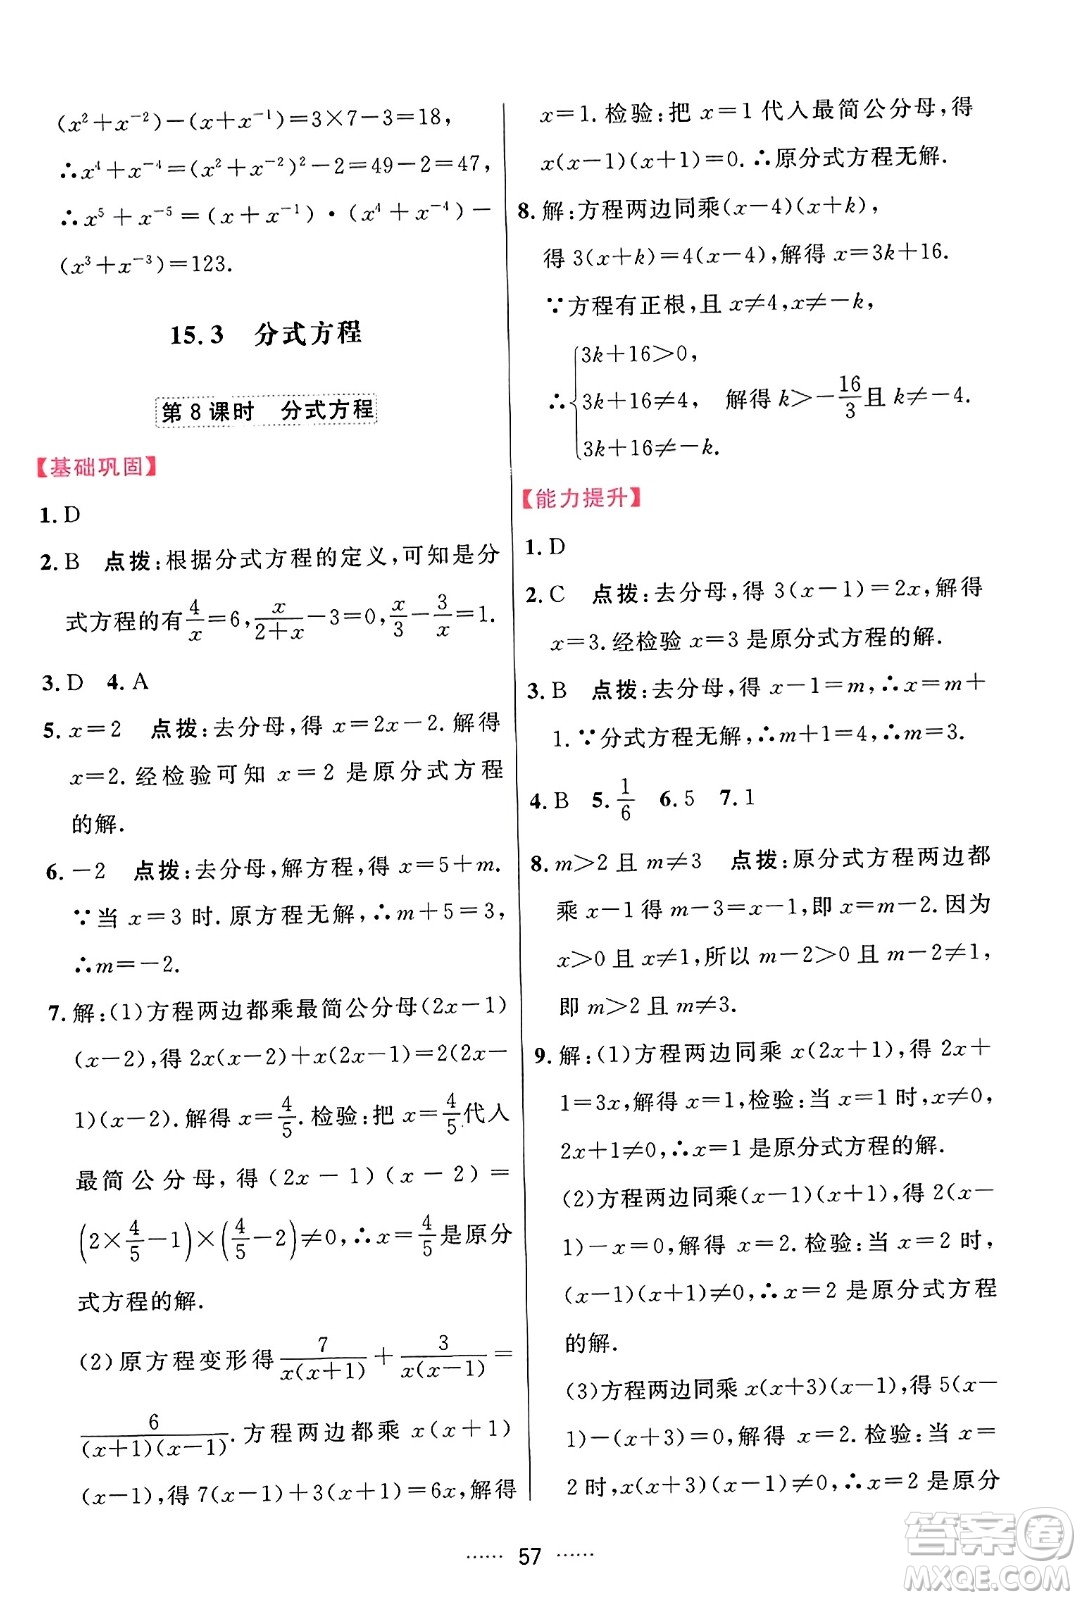 (x²+x⁻²)－(x+x⁻¹)=3×7－3=18,
∴x⁴+x⁻⁴=(x²+x⁻²)²－2=49－2=47,
∴x⁵+x⁻⁵=(x+x⁻¹)·(x⁴+x⁻⁴)－
(x³+x⁻³)=123.
15.3 分式方程
第8课时 分式方程
【基础巩固】
1. D
2. B 点拨:根据分式方程的定义,可知是分
式方程的有4/x=6,x/(2+x)－3=0,x/3－3/x=1.
3. D 4. A
5. x=2 点拨:去分母,得 x=2x－2.解得
x=2.经检验可知 x=2 是原分式方程
的解.
6. －2 点拨:去分母,解方程,得 x=5+m.
∵当 x=3 时.原方程无解,∴m+5=3,
∴m=－2.
7. 解:(1)方程两边都乘最简公分母(2x－1)
(x－2),得 2x(x－2)+x(2x－1)=2(2x－
1)(x－2).解得 x=4/5.检验:把 x=4/5代入
最简公分母,得(2x－1)(x－2)=
(2×4/5－1)×(4/5－2)≠0,∴x=4/5是原分
式方程的解.
(2)原方程变形得7/(x(x+1))+3/(x(x－1))=
6/((x+1)(x－1)).方程两边都乘 x(x+1)
(x－1),得 7(x－1)+3(x+1)=6x,解得
x=1.检验:把 x=1代入最简公分母,得
x(x－1)(x+1)=0.∴原分式方程无解.
8. 解:方程两边同乘(x－4)(x+k),
得 3(x+k)=4(x－4),解得 x=3k+16.
∵方程有正根,且 x≠4,x≠－k,
3k+16>0,
∴{3k+16≠4, 解得 k>－16/3且 k≠－4.
3k+16≠－k.
【能力提升】
1. D
2. C 点拨:去分母,得 3(x－1)=2x,解得
x=3.经检验 x=3 是原分式方程的解.
3. B 点拨:去分母,得 x－1=m,∴x=m+
1.∵分式方程无解,∴m+1=4,∴m=3.
4. B 5. 1/6 6. 5 7. 1
8. m>2 且 m≠3 点拨:原分式方程两边都
乘 x－1 得 m－3=x－1,即 x=m－2.因为
x>0 且 x≠1,所以 m－2>0 且 m－2≠1,
即 m>2 且 m≠3.
9. 解:(1)方程两边同乘 x(2x+1),得 2x+
1=3x,解得 x=1.检验:当 x=1 时,x≠0,
2x+1≠0,∴x=1 是原分式方程的解.
(2)方程两边同乘(x－1)(x+1),得 2(x－
1)－x=0,解得 x=2.检验:当 x=2 时,
(x－1)(x+1)≠0,∴x=2 是原分式方程
的解.
(3)方程两边同乘 x(x+3)(x－1),得 5(x－
1)－(x+3)=0,解得 x=2.检验:当 x=
2 时,x(x+3)(x－1)≠0,∴x=2 是原分
······ 57 ······
答案圈
MXQE.COM